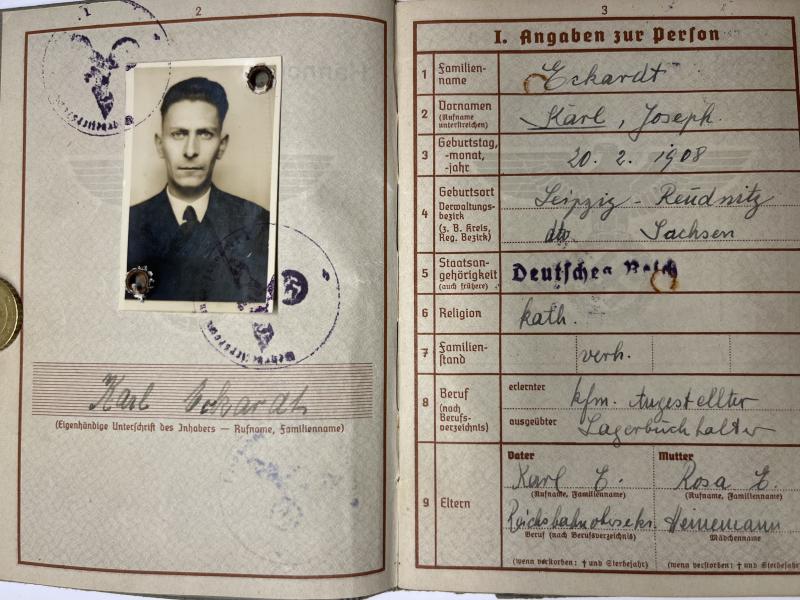 2
Karl Eckardt
(Eigenhändige Unterschrift des Inhabers — Rufname, Familienname)
3
I. Angaben zur Person
1 Familien-
name
Eckardt
2 Vornamen
(Rufname
unterstreichen)
Karl, Joseph.
3 Geburtstag,
-monat,
-jahr
20. 2. 1908
4 Geburtsort
Verwaltungs-
bezirk
(z. B. Kreis,
Reg. Bezirk)
Leipzig - Reudnitz
Sachsen
5 Staatsan-
gehörigkeit
(auch frühere)
Deutsches Reich
6 Religion
kath.
7 Familien-
stand
verh.
8 Beruf
(nach
Berufs-
verzeichnis)
erlernter
kfm. Angestellter
ausgeübter
Lagerbuchhalter
9 Eltern
Vater
Karl E.
(Rufname, Familienname)
Reichsbahnobersekr.
Beruf (nach Berufsverzeichnis)
(wenn verstorben: † und Sterbejahr)
Mutter
Rosa E.
(Rufname, Familienname)
Heinemann
Mädchenname
(wenn verstorben: † und Sterbejahr)